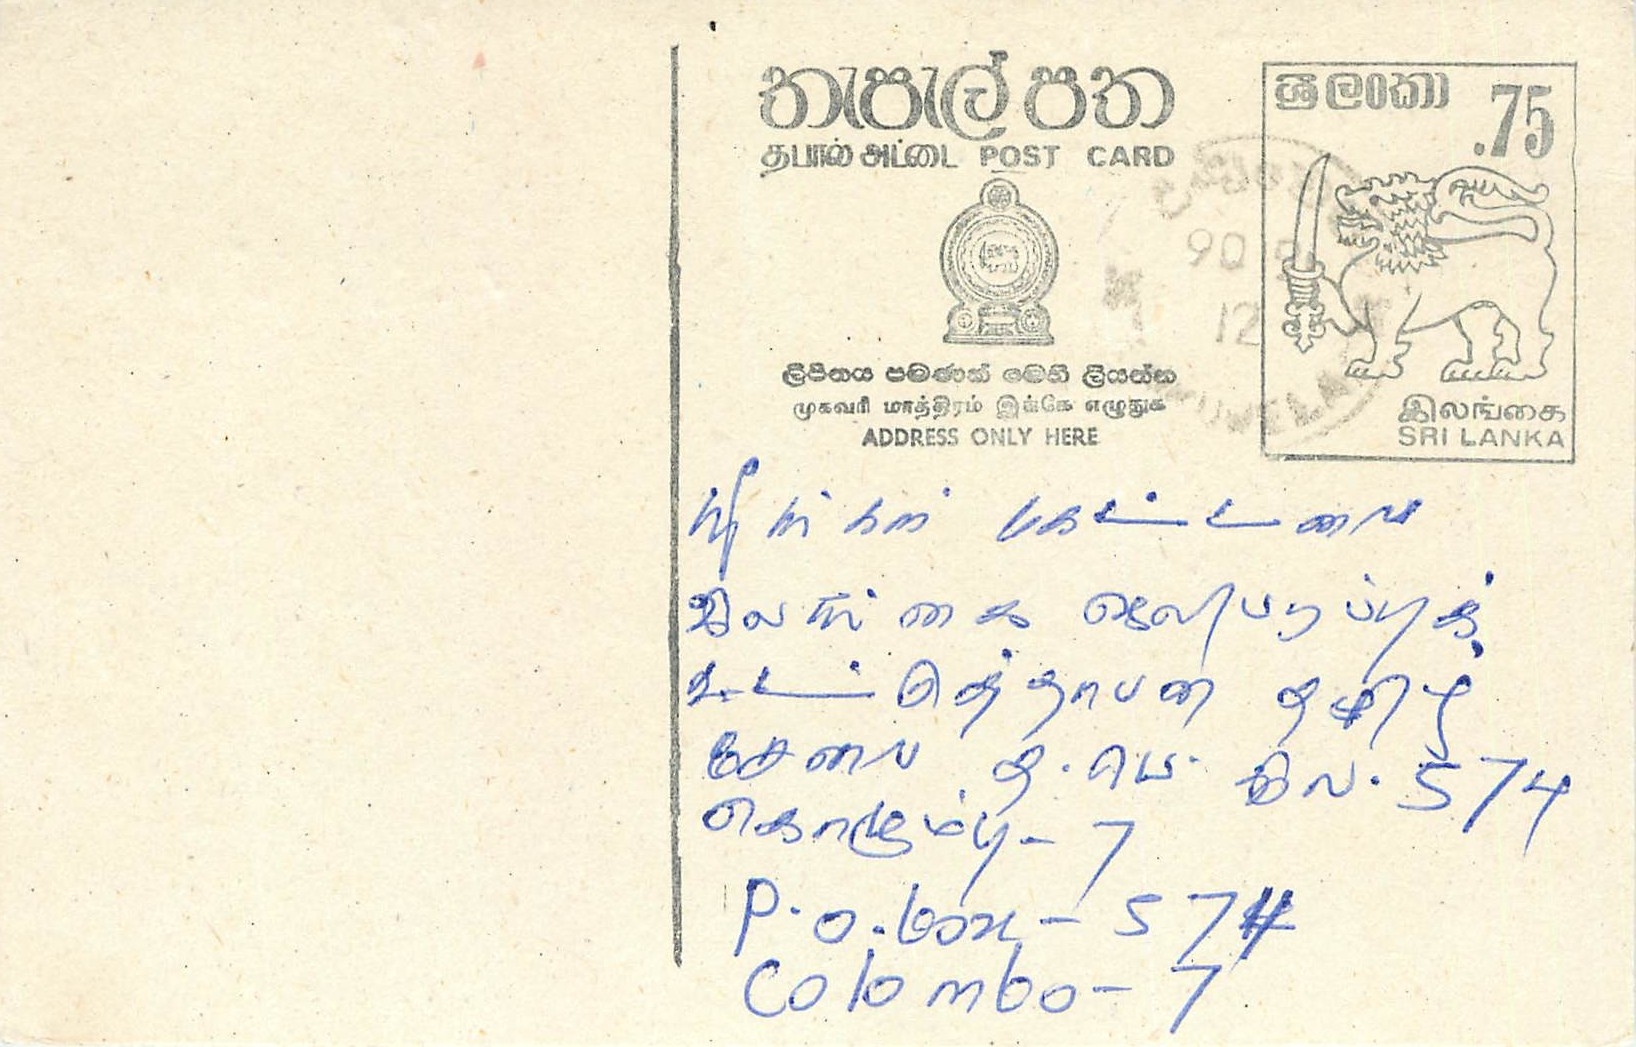 තැපැල් පත
தபால் அட்டை POST CARD
ශ්‍රී ලංකා .75
90
12
ලිපිනය පමණක් මෙහි ලියන්න
முகவரி மாத்திரம் இங்கே எழுதுக
ADDRESS ONLY HERE
இலங்கை
SRI LANKA
நீங்கள் கேட்டவை
இலங்கை ஒலிபரப்புக்
கூட்டுத்தாபன தமிழ்
சேவை த.பெ. இல. 574
கொழும்பு - 7
P.O.Box - 574
Colombo - 7